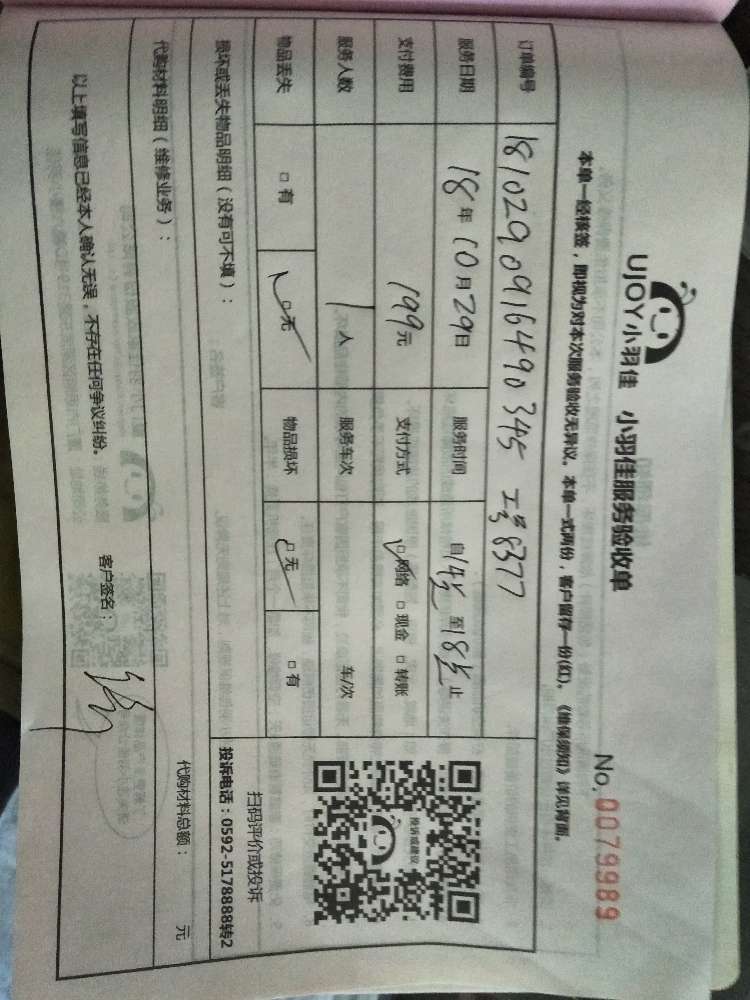 UJOY小羽佳
小羽佳服务验收单
No.0079989
本单一经核签，即视为对本次服务验收无异议。本单一式两份，客户留存一份(红)。《维保须知》详见背面。
订单编号 18102909164490345 工号8377
服务日期 18年10月29日 服务时间 自14点至18点止
支付费用 199元 支付方式 ☑网络 □现金 □转账
服务人数 1人 服务车次 车/次
物品丢失 □有 ☑无 物品损坏 ☑无 □有
投诉或建议
扫码评价或投诉
投诉电话：0592-5178888转2
损坏或丢失物品明细（没有可不填）：
代购材料明细（维修业务）：
代购材料总额： 元
以上填写信息已经本人确认无误，不存在任何争议纠纷。
客户签名：